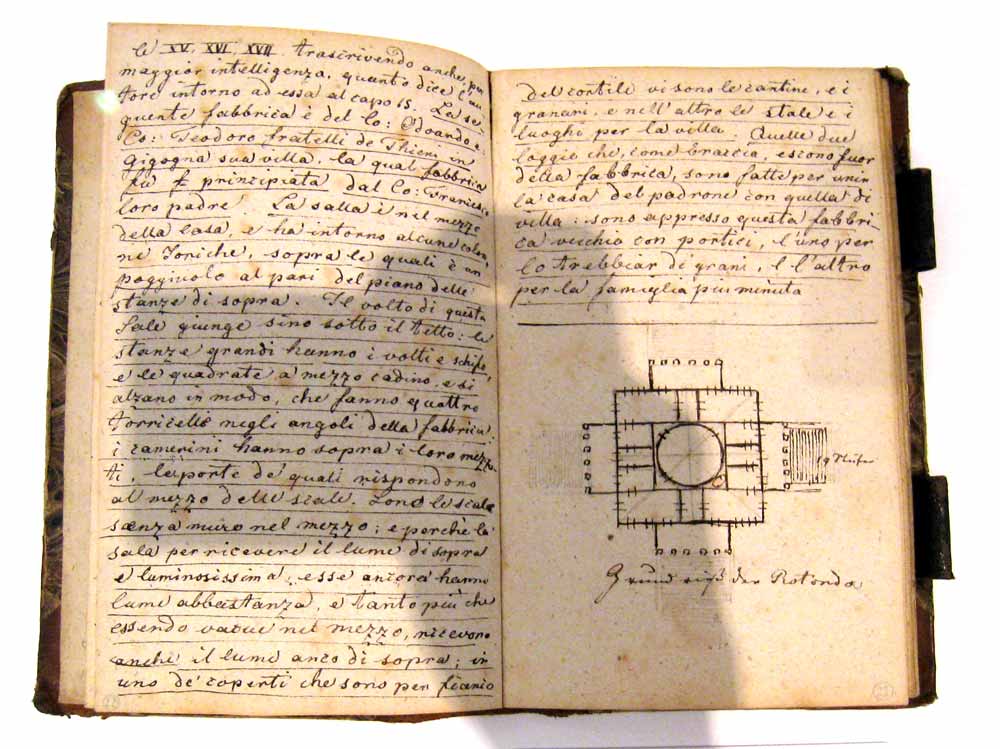 le XV, XVI, XVII. trascrivendo anche, per
maggior intelligenza, quanto dice l'au
tore intorno ad essa al capo 15. La se-
guente fabbrica è del Co: Odoardo e
Co: Teodoro fratelli de Thieni in
Gigogna sua villa, la qual fabbrica
fù principiata dal Co: Francesco
loro padre. La salla è nel mezzo
della casa, e ha intorno alcune colon
ne Joniche, sopra le quali è un
poggiuolo al pari del piano delle
stanze di sopra. Il volto di questa
Sale giunge sino sotto il tetto: le
stanze grandi hanno i volti e schifo,
e le quadrate a mezzo cadino, e si
alzano in modo, che fanno quattro
torricelle negli angoli della fabbrica
i camerini hanno sopra i loro mezza
ti, le porte de' quali rispondono
al mezzo delle scale. Sono le scale
senza muro nel mezzo; e perchè la
sala per ricevere il lume di sopra
e luminosissima, esse ancora hanno
lume abbastanza, e tanto più che
essendo vacue nel mezzo, ricevono
anche il lume anco di sopra; in
uno de' coperti che sono per fianco
del cortile vi sono le cantine, e i
granari, e nell'altro le stale e i
luoghi per la villa. Quelle due
loggie che, come braccia, escono fuor
della fabbrica, sono fatte per unir
la casa del padrone con quella di
villa: sono appresso questa fabbri-
ca vecchia con portici, l'uno per
lo trebbiar di grani, e l'altro
per la famiglia piu minuta
19 Stufen
Grund riß der Rotonda